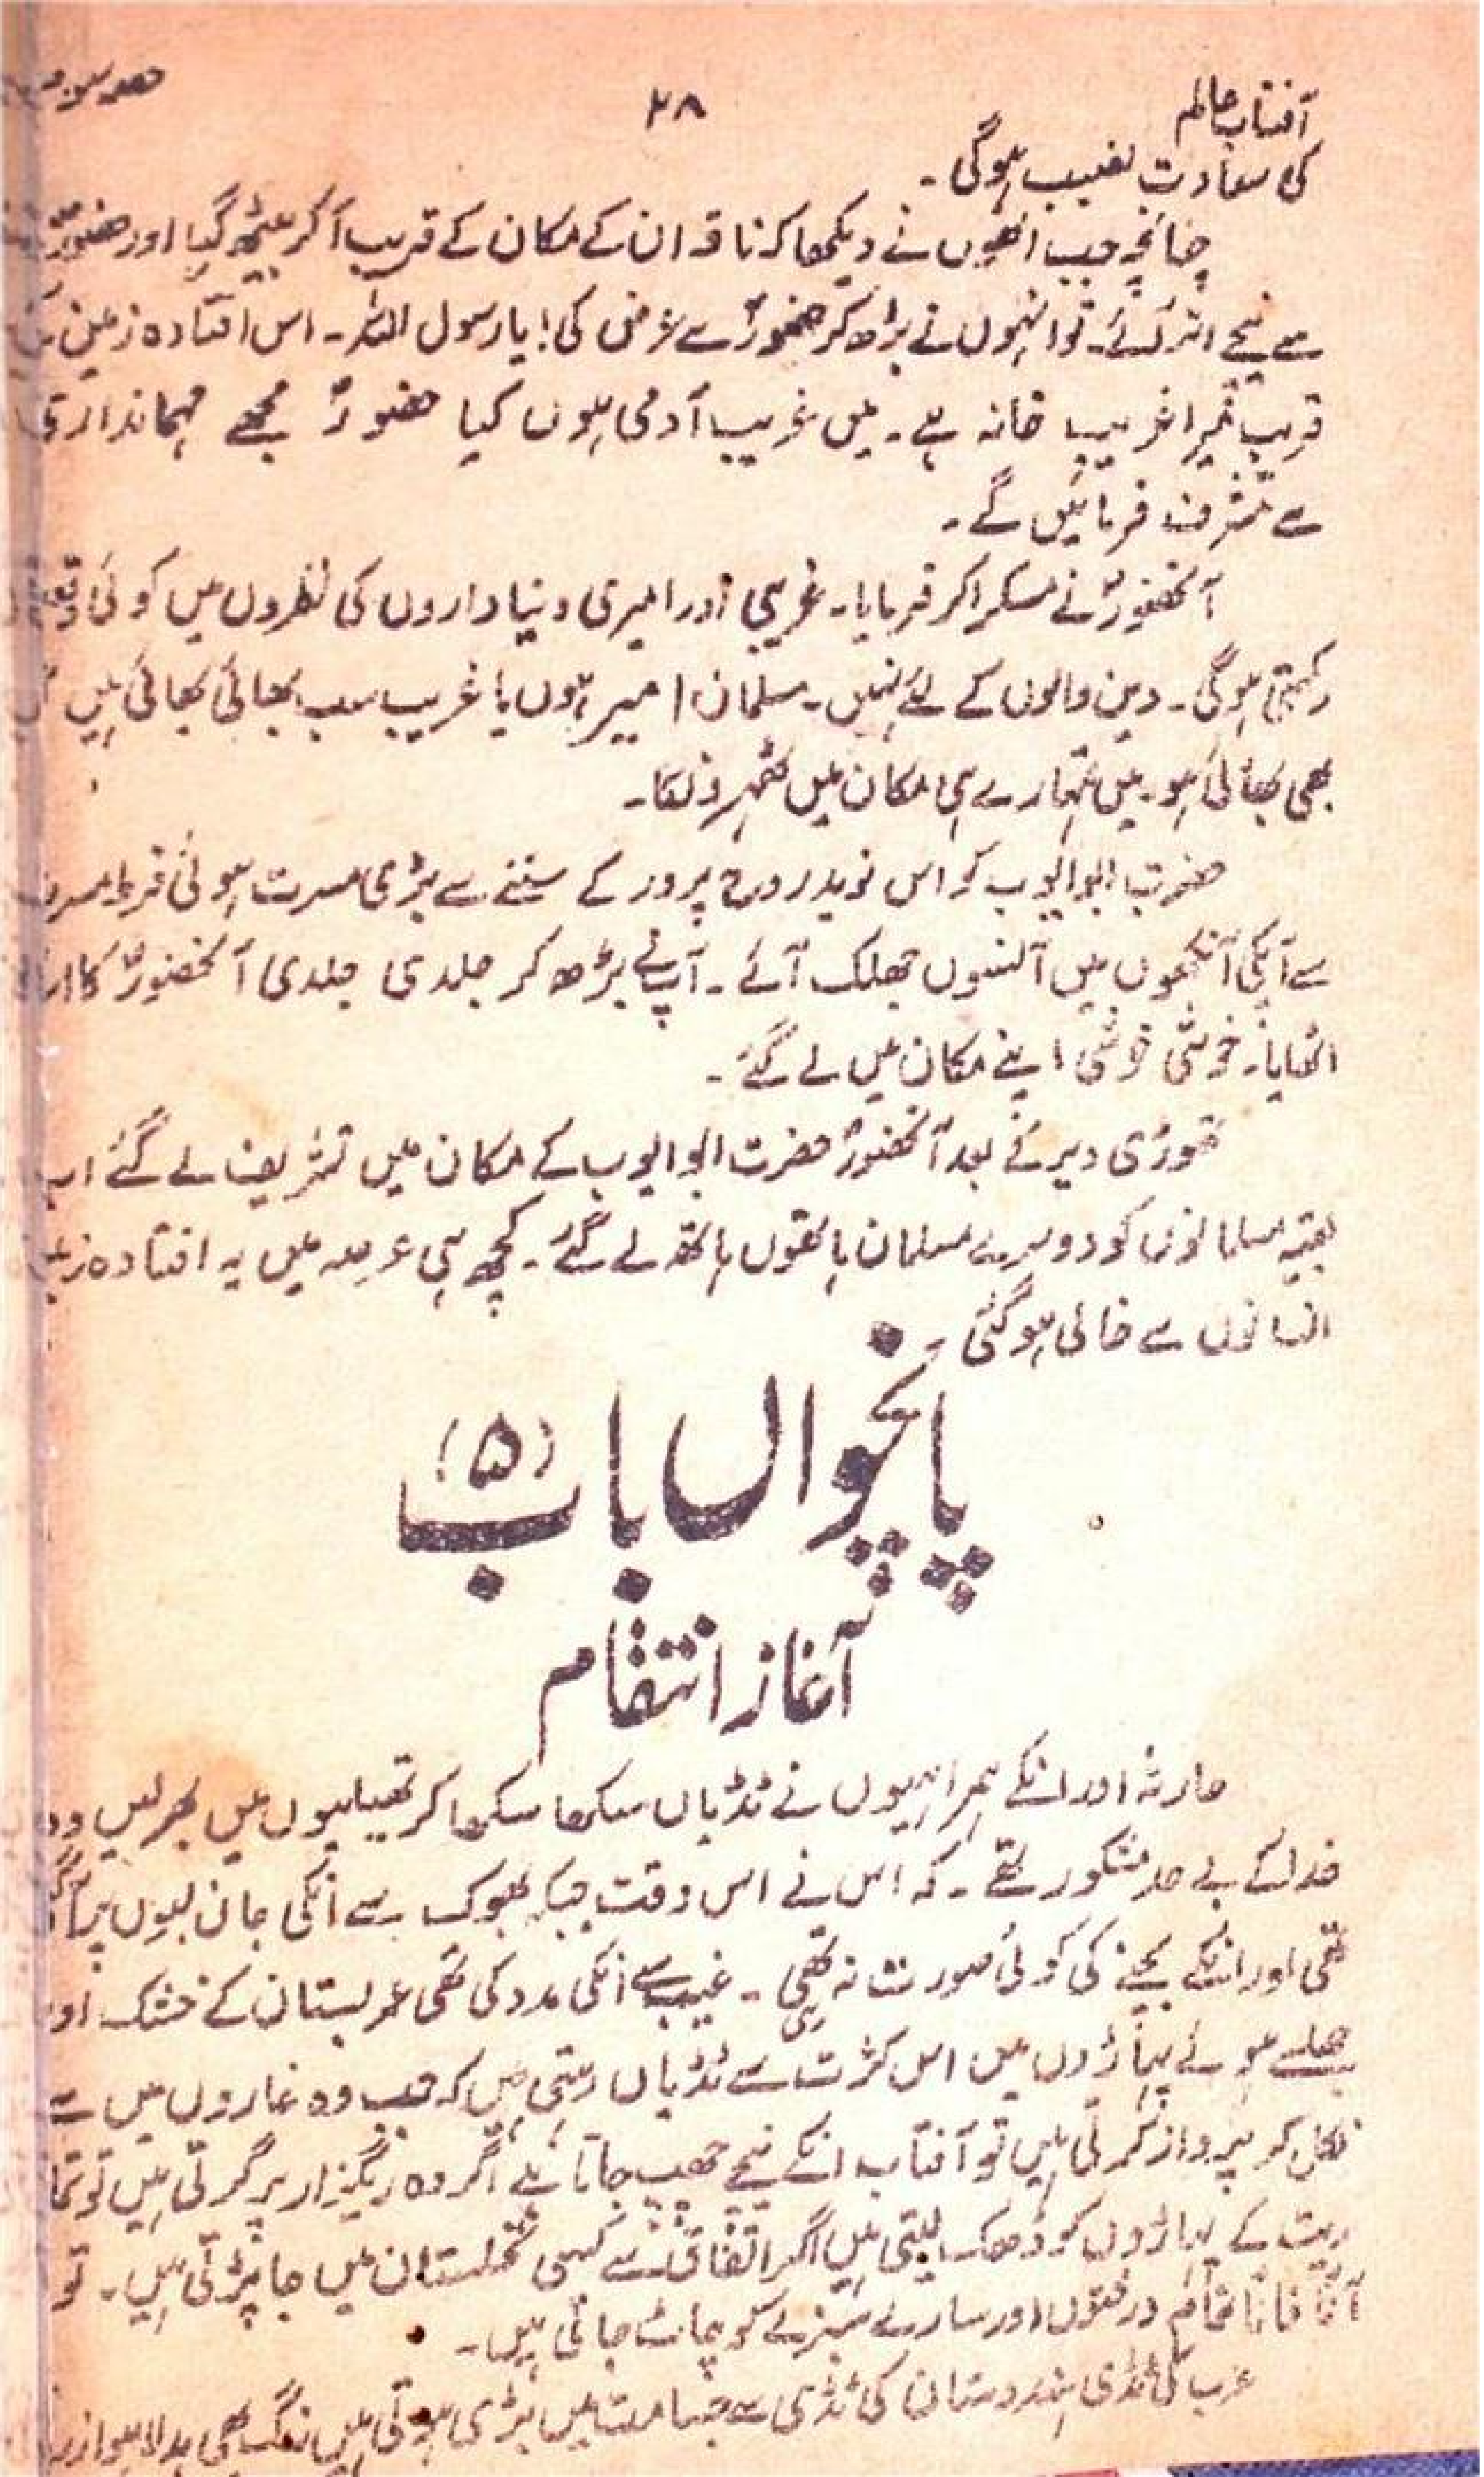 آفتاب عالم ۴۸ حصہ سوم
کی سعادت نصیب ہوگی۔
چنانچہ جب انھوں نے دیکھا کہ ناقہ ان کے مکان کے قریب آ کر بیٹھ گیا اور حضورؐ
سے نیچے اتر گئے۔ تو انہوں نے بڑھ کر حضورؐ سے عرض کی! یا رسول اللہ۔ اس افتادہ زمین کے
قریب میرا غریب خانہ ہے۔ میں غریب آدمی ہوں کیا حضورؐ مجھے مہمانداری
سے مشرف فرمائیں گے۔
آنحضورؐ نے مسکرا کر فرمایا۔ غریبی اور امیری دنیا داروں کی نظروں میں کوئی
رکھتی ہوگی۔ دین والوں کے لئے نہیں۔ مسلمان امیر ہوں یا غریب سب بھائی بھائی ہیں
بھی بھائی ہو۔ میں تمہارے ہی مکان میں ٹھہرونگا۔
حضرت ابو ایوب کو اس نوید روح پرور کے سننے سے بڑی مسرت ہوئی فرط مسرت
سے آپکی آنکھوں میں آنسوں جھلک آئے۔ آپ نے بڑھ کر جلدی جلدی آنحضورؐ کا
اٹھایا۔ خوشی خوشی اپنے مکان میں لے گئے۔
تھوڑی دیر کے بعد آنحضورؐ حضرت ابو ایوب کے مکان میں تشریف لے گئے اب
بقیہ مسلمانوں کو دوسرے مسلمان ہاتھوں ہاتھ لے گئے۔ کچھ ہی عرصہ میں یہ افتادہ زمین
انسانوں سے خالی ہوگئی۔
پانچواں باب (۵)
آغاز انتقام
حارثہ اور انکے ہمراہیوں نے ٹڈیاں سکھا سکھا کر تھیلیوں میں بھر لیں وہ
خدا کے بے حد مشکور تھے۔ کہ اس نے اس وقت جبکہ بھوک سے انکی جان لبوں پر آگئی
تھی اور انکے بچنے کی کوئی صورت نہ تھی۔ غیب سے انکی مدد کی تھی عربستان کے خشک اور
جھلسے ہوئے پہاڑوں میں اس کثرت سے ٹڈیاں رہتی ہیں کہ جب وہ غاروں میں سے
نکل کر پرواز کرتی ہیں تو آفتاب انکے نیچے چھپ جاتا ہے اگر وہ ریگزار پر گرتی ہیں تو تمام
ریت کے پہاڑوں کو ڈھک لیتی ہیں اگر اتفاق سے کسی نخلستان میں جا پڑتی ہیں۔ تو
آنًا فانًا تمام درختوں اور سارے سبزے کو چاٹ جاتی ہیں۔
عرب کی ٹڈی ہندوستان کی ٹڈی سے جسامت میں بڑی ہوتی ہیں رنگ بھی بدلا ہوا